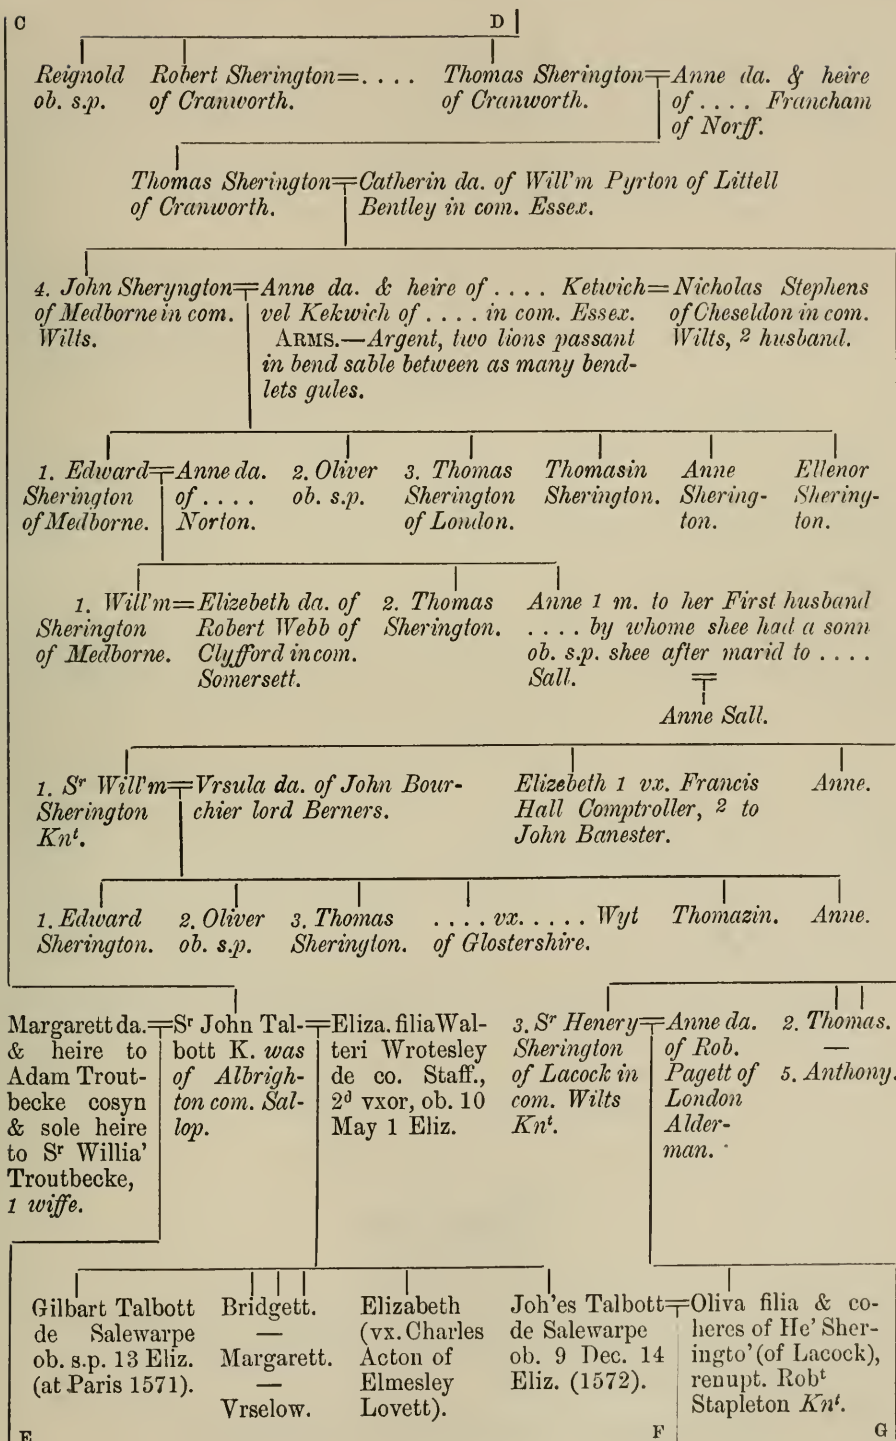 C D
Reignold
ob. s.p.
Robert Sherington=. . . .
of Cranworth.
Thomas Sherington=
of Cranworth.
Anne da. & heire
of . . . . Francham
of Norff.
Thomas Sherington=
of Cranworth.
Catherin da. of Will'm Pyrton of Littell
Bentley in com. Essex.
4. John Sheryngton=
of Medborne in com.
Wilts.
Anne da. & heire of . . . . Ketwich=
vel Kekwich of . . . . in com. Essex.
ARMS.—Argent, two lions passant
in bend sable between as many bend-
lets gules.
Nicholas Stephens
of Cheseldon in com.
Wilts, 2 husband.
1. Edward=
Sherington
of Medborne.
Anne da.
of . . . .
Norton.
2. Oliver
ob. s.p.
3. Thomas
Sherington
of London.
Thomasin
Sherington.
Anne
Shering-
ton.
Ellenor
Shering-
ton.
1. Will'm=
Sherington
of Medborne.
Elizebeth da. of
Robert Webb of
Clyfford in com.
Somersett.
2. Thomas
Sherington.
Anne 1 m. to her First husband
. . . . by whome shee had a sonn
ob. s.p. shee after marid to . . . .
Sall.
Anne Sall.
1. Sr Will'm=
Sherington
Knt.
Vrsula da. of John Bour-
chier lord Berners.
Elizebeth 1 vx. Francis
Hall Comptroller, 2 to
John Banester.
Anne.
1. Edward
Sherington.
2. Oliver
ob. s.p.
3. Thomas
Sherington.
. . . . vx. . . . . Wyt
of Glostershire.
Thomazin.
Anne.
Margarett da.=
& heire to
Adam Trout-
becke cosyn
& sole heire
to Sr Willia'
Troutbecke,
1 wiffe.
Sr John Tal-=
bott K. was
of Albrigh-
ton com. Sal-
lop.
Eliza. filia Wal-
teri Wrotesley
de co. Staff.,
2d vxor, ob. 10
May 1 Eliz.
3. Sr Henery=
Sherington
of Lacock in
com. Wilts
Knt.
Anne da.
of Rob.
Pagett of
London
Alder-
man.
2. Thomas.
—
5. Anthony.
Gilbart Talbott
de Salewarpe
ob. s.p. 13 Eliz.
(at Paris 1571).
Bridgett.
—
Margarett.
—
Vrselow.
Elizabeth
(vx. Charles
Acton of
Elmesley
Lovett).
Joh'es Talbott=
de Salewarpe
ob. 9 Dec. 14
Eliz. (1572).
Oliva filia & co-
heres of He' Sher-
ingto' (of Lacock),
renupt. Robt
Stapleton Knt.
E F G